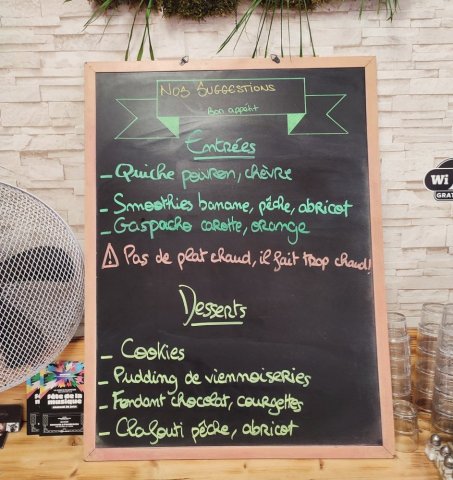 Nos Suggestions
Bon appétit
Entrées
- Quiche poivron, chèvre
- Smoothies banane, pêche, abricot
- Gaspacho carotte, orange
⚠ Pas de plat chaud, il fait trop chaud!
Desserts
- Cookies
- Pudding de viennoiseries
- Fondant chocolat, courgettes
- Clafouti pêche, abricot
Wi
GRAT
fête de la
musique